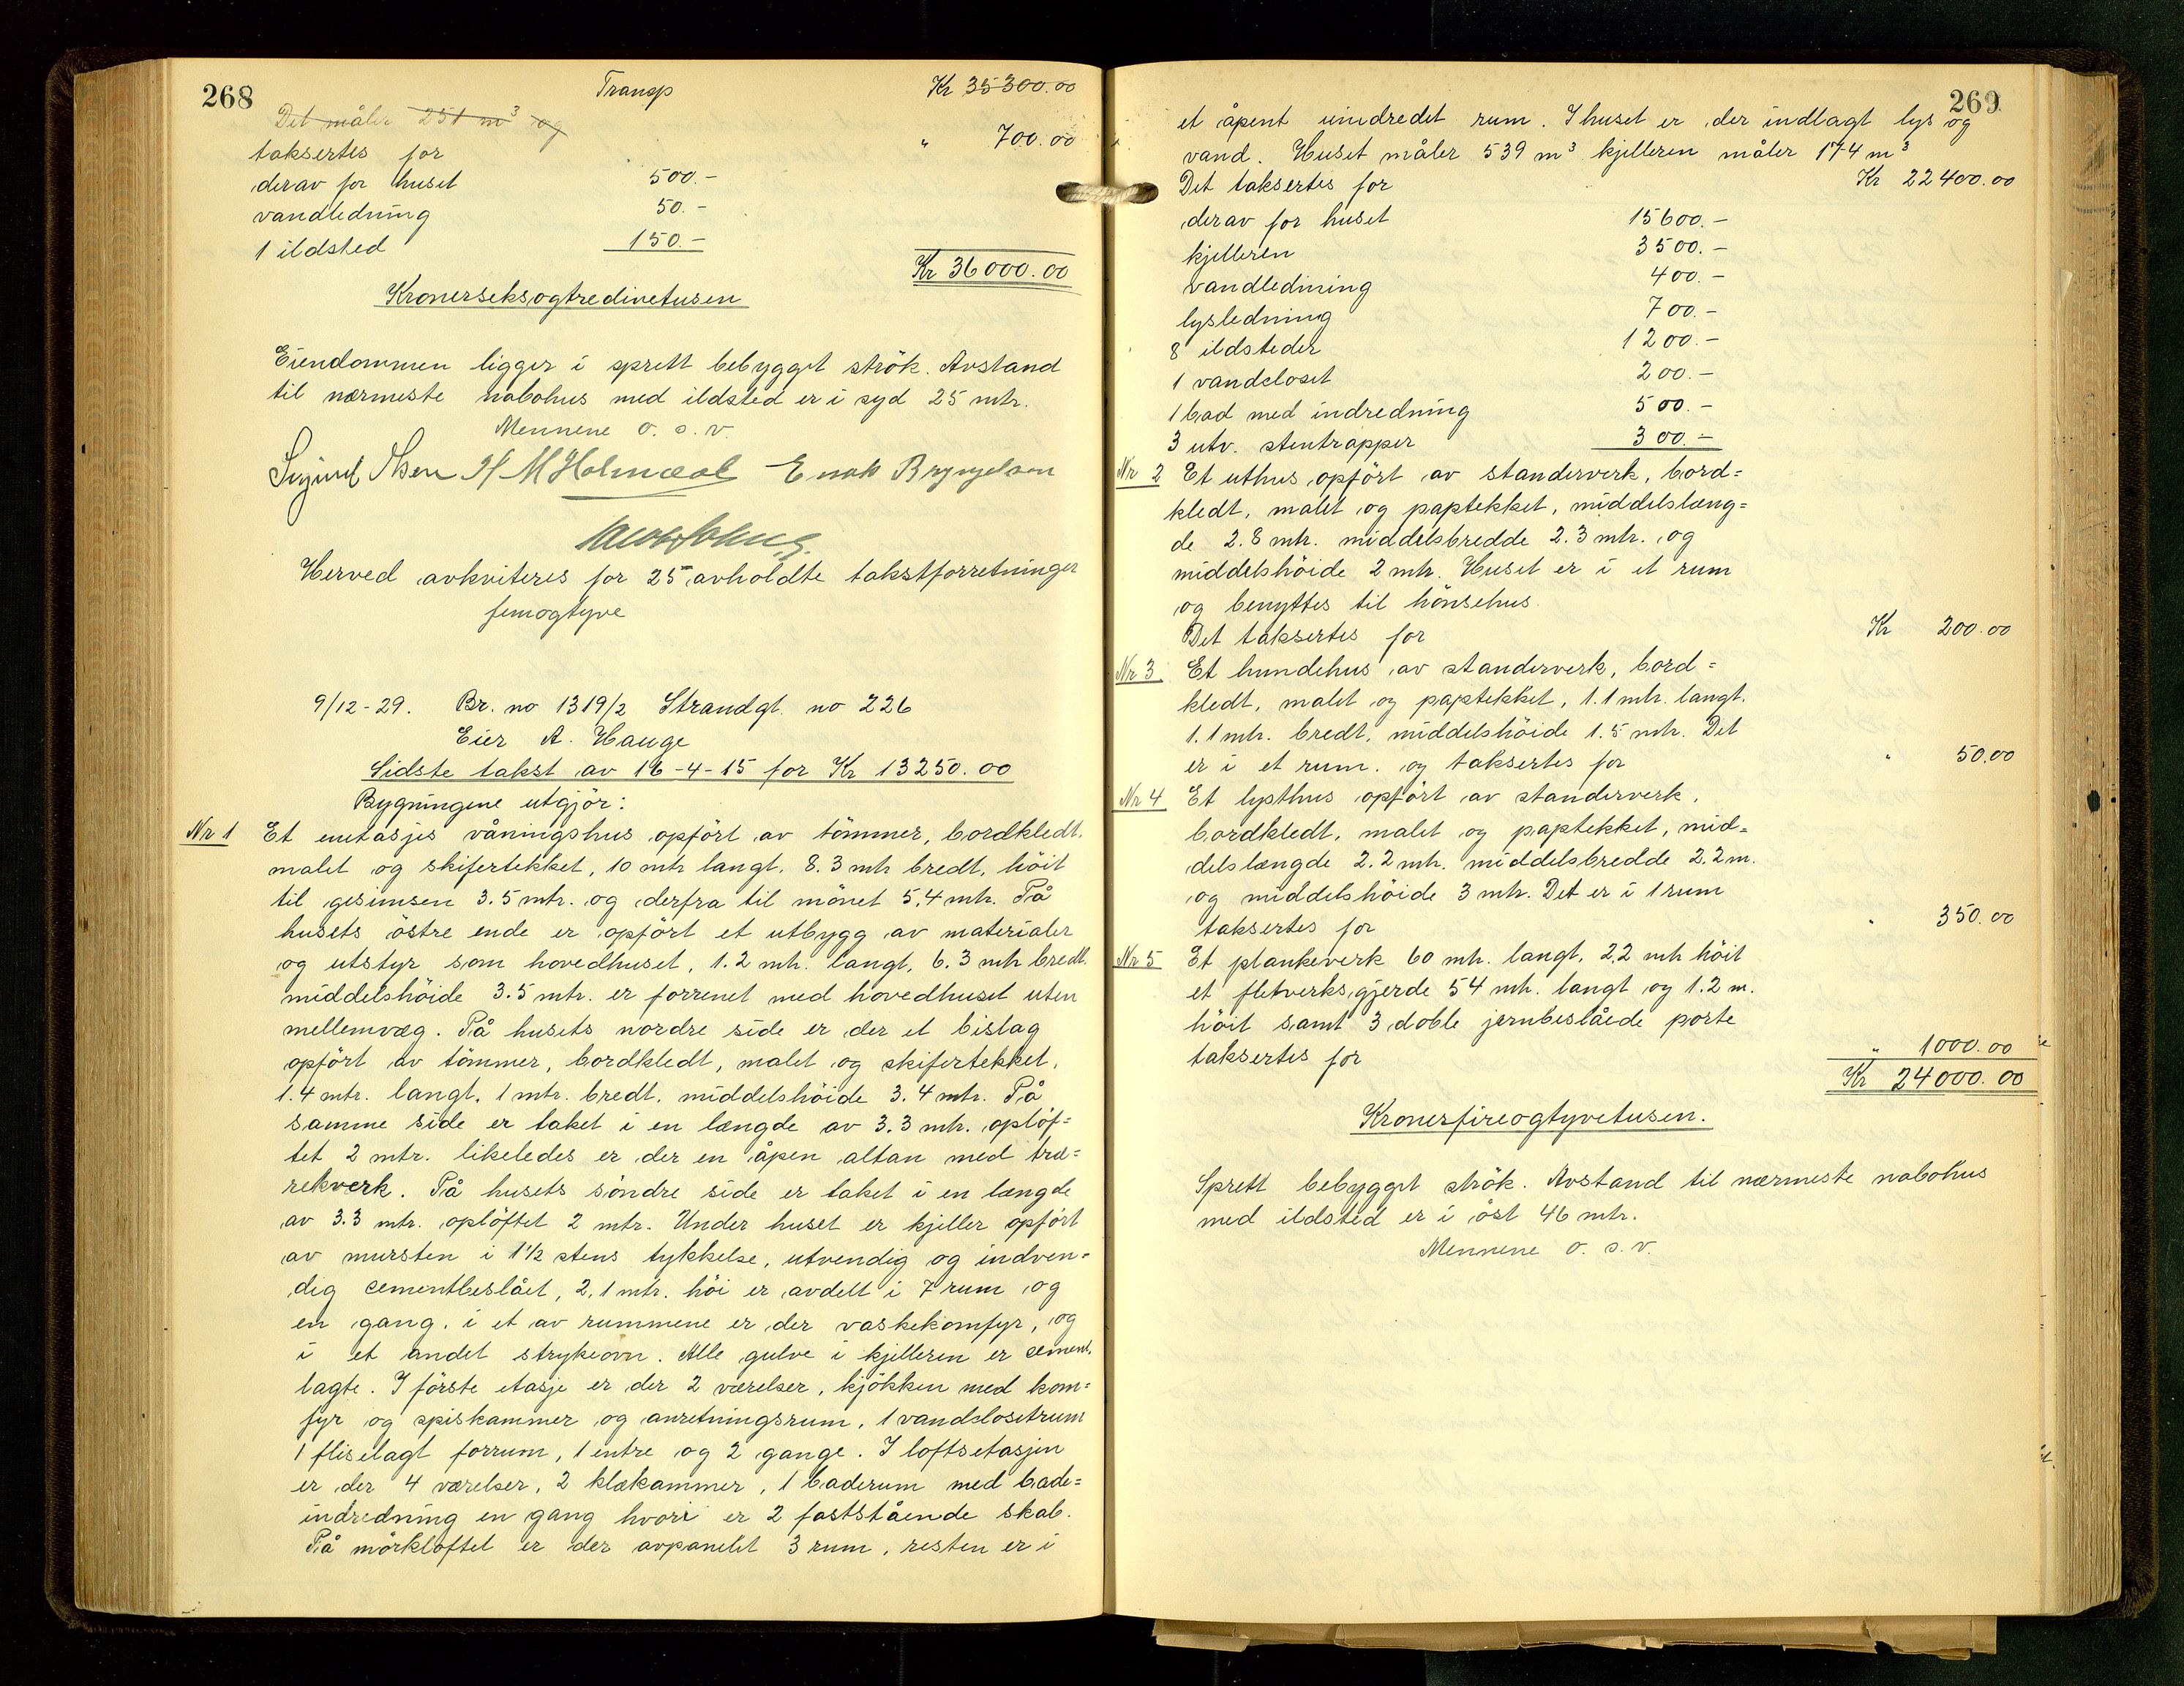 268
Transp Kr 35300.00
Det måler 251 m³ og
taksertes for " 700.00
derav for huset 500.-
vandledning 50.-
1 ildsted 150.-
Kr 36000.00
Kronerseksogtredivetusen
Eiendommen ligger i sprett bebygget strök. Avstand
til nærmeste nabohus med ildsted er i syd 25 mtr.
Mennene o. s. v.
Herved avkviteres for 25 avholdte takstforretninger
femogtyve
9/12-29. Br. no 1319/2 Strandgt. no 226
Eier A. Hauge
Sidste takst av 16-4-15 for Kr 13250.00
Bygningene utgjör:
Nr 1 Et enetasjes våningshus opfört av tömmer, bordkledt.
malet og skifertekket, 10 mtr langt, 8.3 mtr bredt, höit
til gesimsen 3.5 mtr. og derfra til mönet 5.4 mtr. På
husets östre ende er opfört et utbygg av materialer
og utstyr som hovedhuset, 1.2 mtr. langt, 6.3 mtr bredt.
middelshöide 3.5 mtr. er forrenet med hovedhuset uten
mellemvæg. På husets nordre side er der et bislag
opfört av tömmer, bordkledt, malet og skifertekket,
1.4 mtr. langt, 1 mtr. bredt, middelshöide 3.4 mtr. På
samme side er taket i en længde av 3.3 mtr. oplöf=
tet 2 mtr. likeledes er der en åpen altan med træ=
rekverk. På husets söndre side er taket i en længde
av 3.3 mtr. oplöftet 2 mtr. Under huset er kjeller opfört
av mursten i 1½ stens tykkelse, utvendig og indven=
dig cementbeslået, 2,1 mtr. höi er avdelt i 7 rum og
en gang, i et av rummene er der vaskekomfyr, og
i et andet strykeovn. Alle gulve i kjelleren er cement.
lagte. I förste etasje er der 2 værelser, kjökken med kom=
fyr og spiskammer og anretningsrum, 1 vandclosetrum
1 fliselagt forrum, 1 entre og 2 gange. I loftsetasjen
er der 4 værelser, 2 klækammer, 1 baderum med bade=
indredning en gang hvori er 2 faststående skab.
På mörkloftet er der avpanelet 3 rum, resten er i
269
et åpent uindredet rum. I huset er der indlagt lys og
vand. Huset måler 539 m³ kjelleren måler 174 m³
Det taksertes for Kr 22400.00
derav for huset 15600.-
kjelleren 3500.-
vandledning 400.-
lysledning 700.-
8 ildsteder 1200.-
1 vandcloset 200.-
1 bad med indredning 500.-
3 utv. stentrapper 300.-
Nr 2 Et uthus opfört av standerverk, bord=
kledt, malet og paptekket, middelslæng=
de 2.8 mtr. middelsbredde 2.3 mtr. og
middelshöide 2 mtr. Huset er i et rum
og benyttes til hönsehus.
Det taksertes for Kr 200.00
Nr 3 Et hundehus av standerverk, bord=
kledt, malet og paptekket, 1.1 mtr. langt.
1.1 mtr. bredt, middelshöide 1.5 mtr. Det
er i et rum. og taksertes for " 50.00
Nr 4 Et lysthus opfört av standerverk,
bordkledt, malet og paptekket, mid=
delslængde 2.2 mtr. middelsbredde 2.2 m.
og middelshöide 3 mtr. Det er i 1 rum
taksertes for " 350.00
Nr 5 Et plankeverk 60 mtr. langt, 2,2 mtr höit
et fletverksgjerde 54 mtr. langt og 1.2 m.
höit samt 3 doble jernbeslåede porte
taksertes for " 1000.00
Kr 24000.00
Kronerfireogtyvetusen.
Sprett bebygget strök. Avstand til nærmeste nabohus
med ildsted er i öst 46 mtr.
Mennene o. s. v.